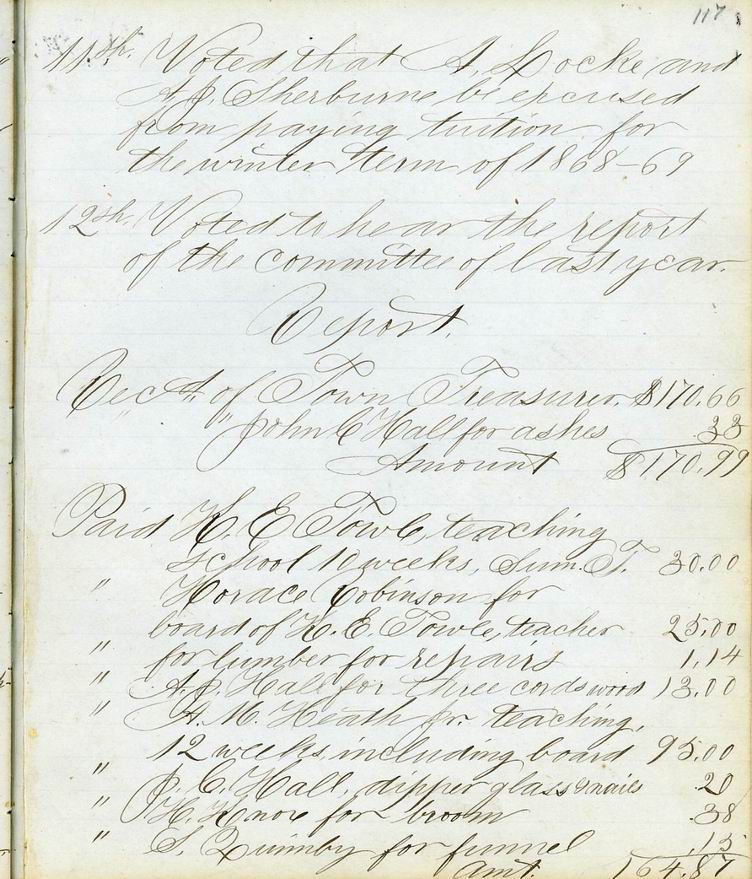 117
11th. Voted that A. Locke and
A. J. Sherburne be excused
from paying tuition for
the winter term of 1868-69
12th. Voted to hear the report
of the committee of last year.
Report.
Rec'd. of Town Treasurer. $170.66
" " John C Hall for ashes .33
Amount $170.99
Paid H. E. Towle, teaching
school 10 weeks, Sum. T. 30.00
" Horace Robinson for
board of H. E. Towle, teacher 25.00
" for lumber for repairs 1.14
" A. J. Hall for three cords wood 13.00
" H. M. Heath jr. teaching,
12 weeks, including board 95.00
" J. C. Hall, dipper glass & nails .20
" H. Knox for broom .38
" S. Quimby for funnel .15
Amt. 164.87